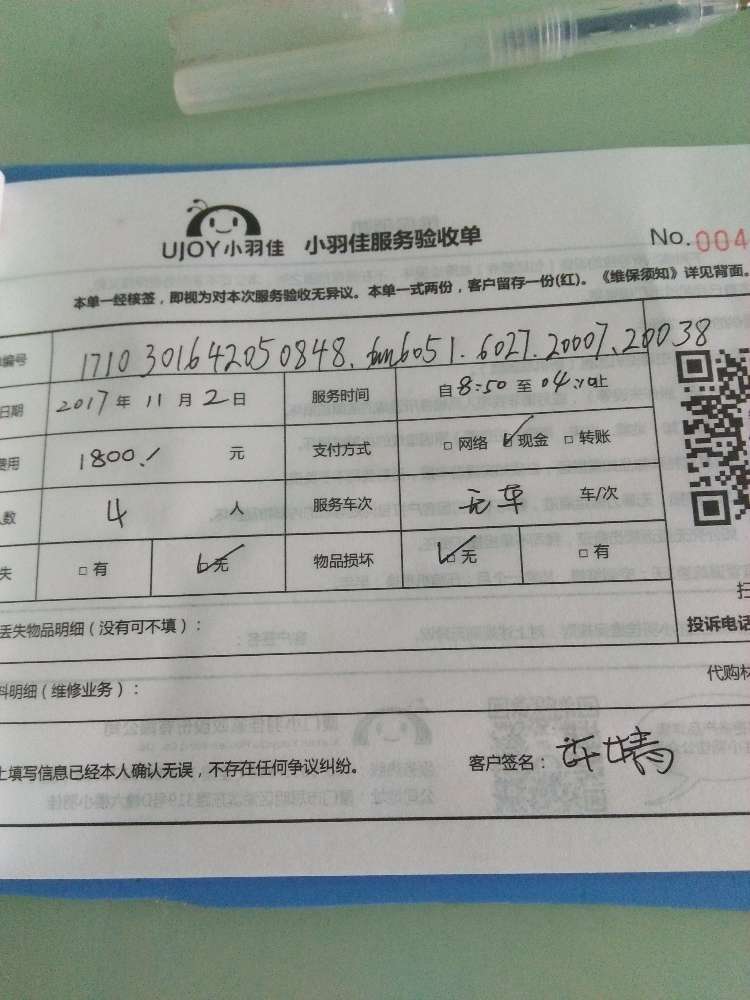 UJOY小羽佳 小羽佳服务验收单 No.004
本单一经核签，即视为对本次服务验收无异议。本单一式两份，客户留存一份(红)。《维保须知》详见背面。
编号 1710301642050848. 6051. 6027. 20007. 20038
日期 2017年11月2日 服务时间 自8:50至04: 止
费用 1800. 元 支付方式 □网络 ☑现金 □转账
人数 4 人 服务车次 无车 车/次
失 □有 ☑无 物品损坏 ☑无 □有
丢失物品明细（没有可不填）： 投诉电话
料明细（维修业务）： 代购材
上填写信息已经本人确认无误，不存在任何争议纠纷。 客户签名：许婧